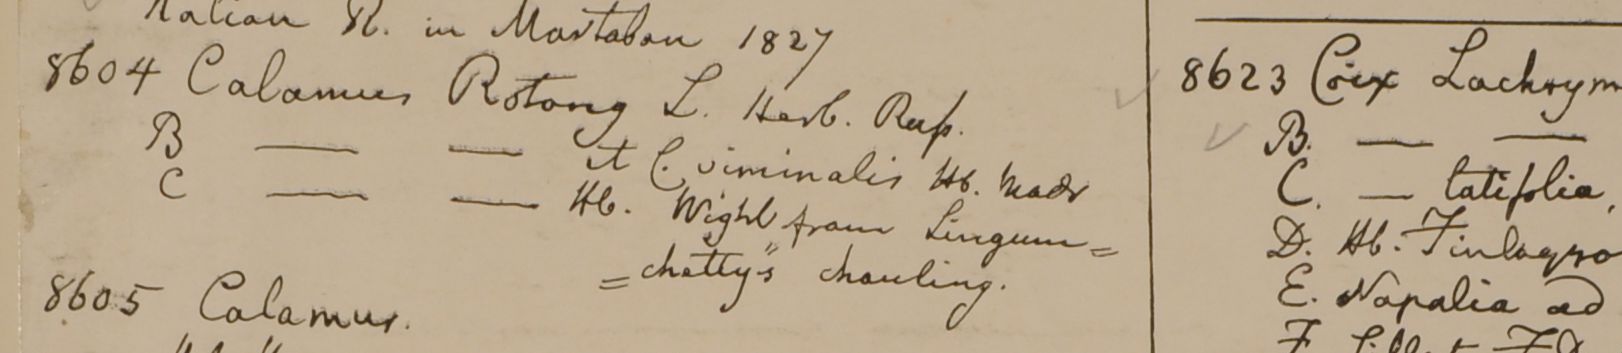 R. in Martaban 1827
8604 Calamus Rotang L. Herb. Rup.
B — — et C. viminalis Hb. Madr
C — — Hb. Wight from Lingum=
=chetty's chauling.
8605 Calamus.
8623 Coix Lachrym
B. — —
C. — latifolia,
D. Hb. Finlayso
E. Napalia ad
F.